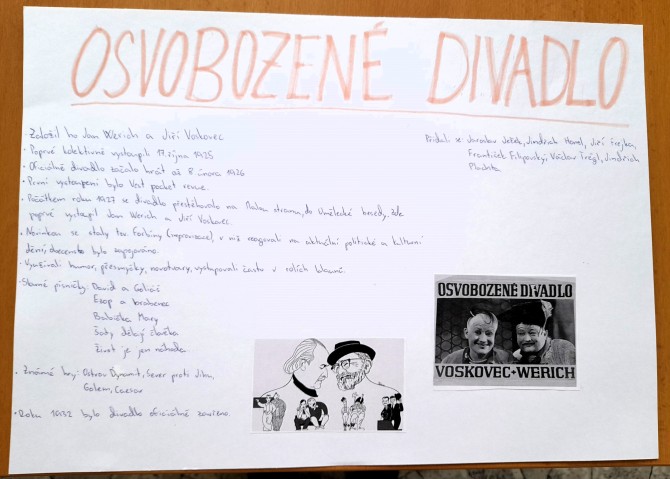 OSVOBOZENÉ DIVADLO
Založil ho Jan Werich a Jiří Voskovec
• Poprvé kolektivně vystoupili 17. října 1925
• Oficiálně divadlo začalo hrát až 8. února 1926
• První vystoupení bylo Vest pocket revue.
• Počátkem roku 1927 se divadlo přestěhovalo na Malou stranu, do Umělecké besedy, zde
poprvé vystoupil Jan Werich a Jiří Voskovec.
• Novinkou se staly tzv. Forbíny (improvizace), v niž reagovali na aktuální politické a kulturní
dění, obecenstvo bylo zapojováno.
• Využívali humor, přesmyčky, novotvary, vystupovali často v rolích klaunů.
• Slavné písničky: David a Goliáš
Ezop a brabenec
Babička Mary
Šaty dělaj člověka
Život je jen náhoda
• Známé hry: Ostrov Dynamit, Sever proti Jihu,
Golem, Caesar
• Roku 1932 bylo divadlo oficiálně zavřeno.
Přidali se Jaroslav Ježek, Jindřich Honzl, Jiří Frejka,
František Filipovský, Václav Trégl, Jindřich
Plachta
OSVOBOZENÉ DIVADLO
VOSKOVEC+WERICH